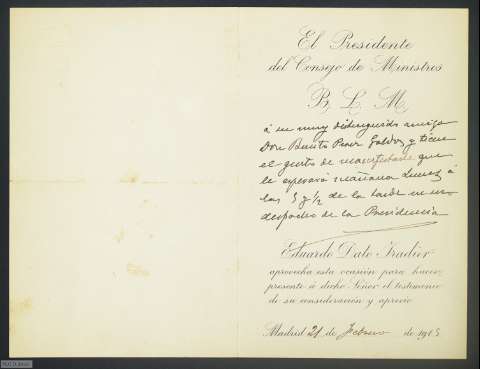 El Presidente
del Consejo de Ministros
B. L. M.
á su muy distinguido amigo
Don Benito Perez Galdos y tiene
el gusto de manifestarle que
le esperará mañana Lunes á
las 5 y ½ de la tarde en su
despacho de la Presidencia
Eduardo Dato Iradier
aprovecha esta ocasión para hacer
presente á dicho Señor el testimonio
de su consideración y aprecio
Madrid 21 de Febrero de 1915